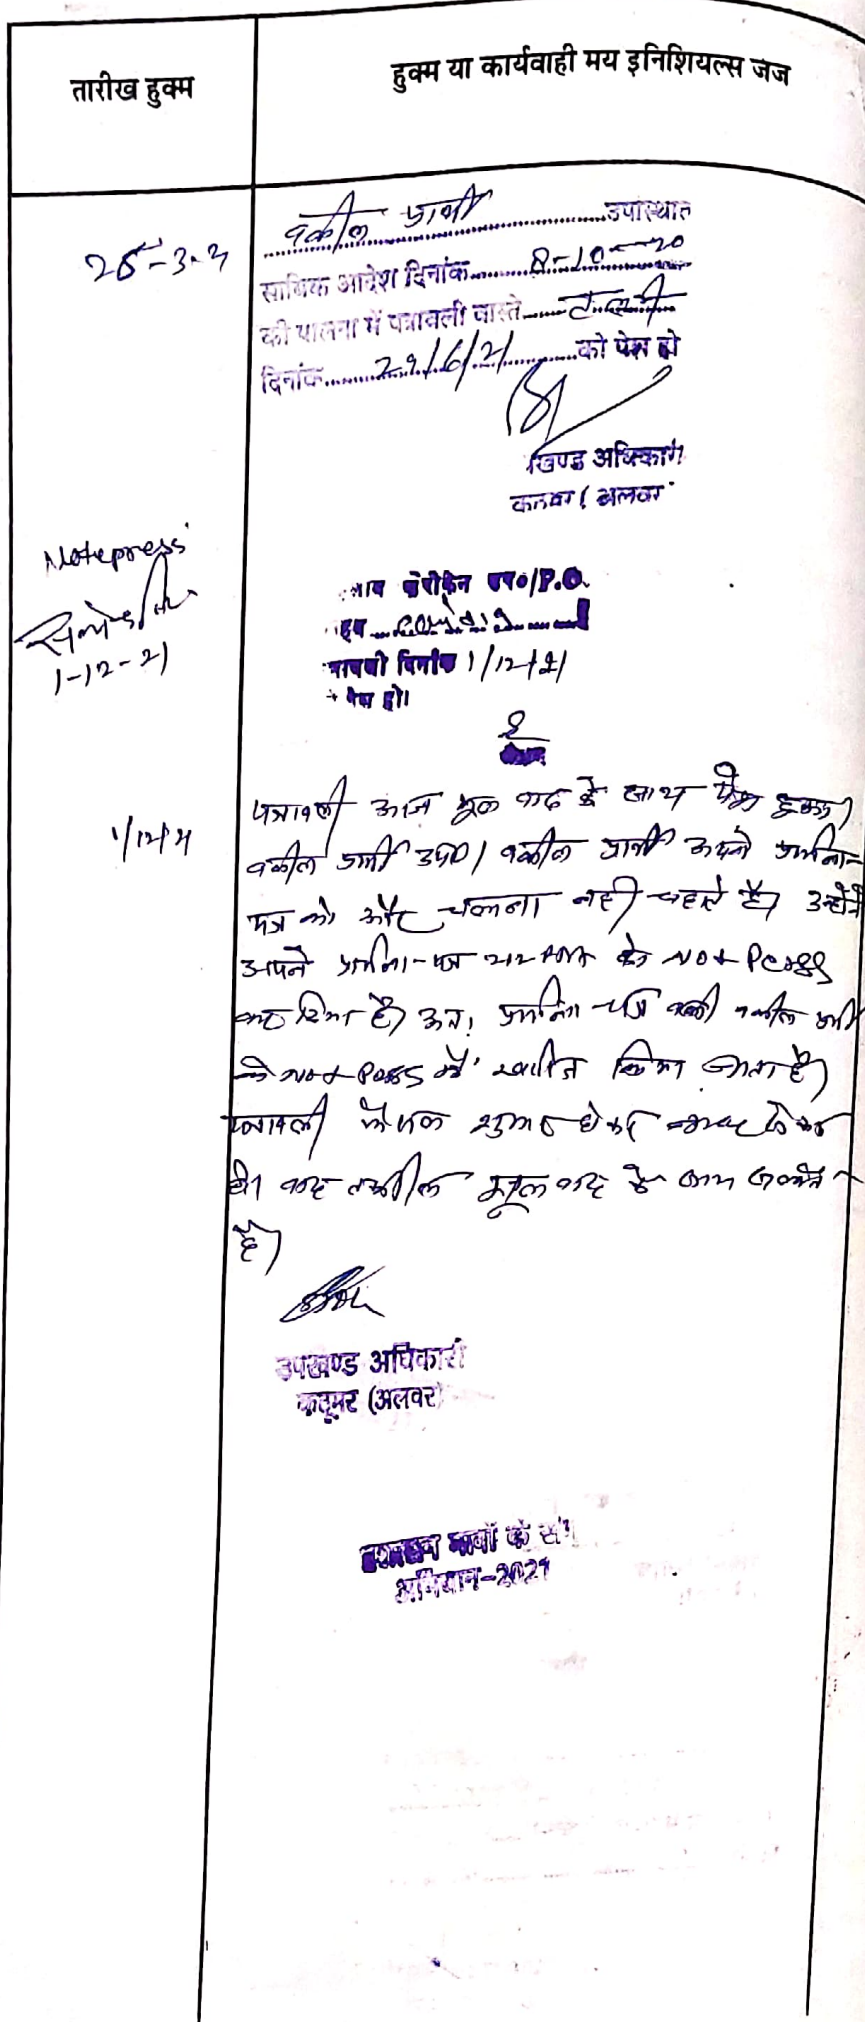 तारीख हुक्म
हुक्म या कार्यवाही मय इनिशियल्स जज
वकील प्रार्थी उपस्थित
25-3-21
साबिक आदेश दिनांक 8-10-20
की पालना में पत्रावली वास्ते तलबी
दिनांक 29/6/21 को पेश हो
खण्ड अधिकारी
(अलवर
Notepress
1-12-21
P.O.
दिनांक 1/12/21
पेश हो।
1/12/21
पत्रावली आज मूल वाद के साथ पेश हुई।
वकील प्रार्थी उप0। वकील प्रार्थी अपने प्रार्थना-
पत्र को और चलाना नही चाहते है। उन्होंने
अपने प्रार्थना-पत्र को Not Press
कर दिया है। अतः प्रार्थना-पत्र वकील प्रार्थी
के Not Press में खारिज किया जाता है।
पत्रावली फैसल शुमार होकर
वाद तकमील मूल वाद के साथ
है।
उपखण्ड अधिकारी
कठूमर (अलवर)
प्रशासन गावों के संग
अभियान-2021